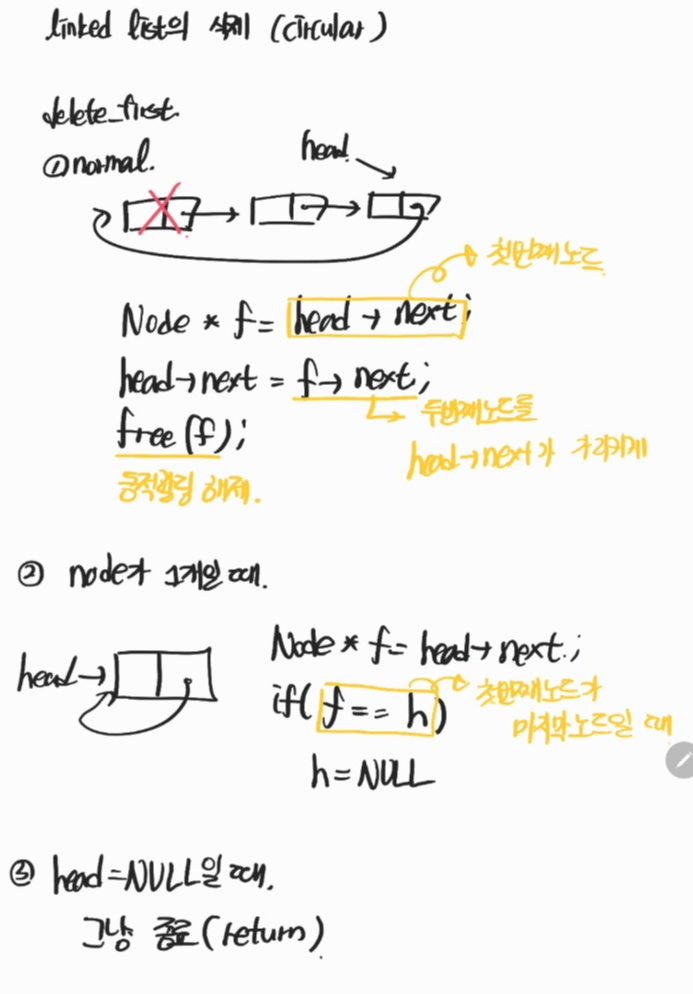 linked list의 삭제 (circular)
delete_first.
① normal.
head
첫번째노드
Node * f = head → next;
head→next = f→ next;
두번째노드를
head→next가 가리키게
free(f);
동적할당 해제.
② node가 1개일 때.
head→
Node * f= head→next.;
if( f == h)
첫번째노드가
마지막노드일 때
h=NULL
③ head=NULL일 때.
그냥 종료(return)